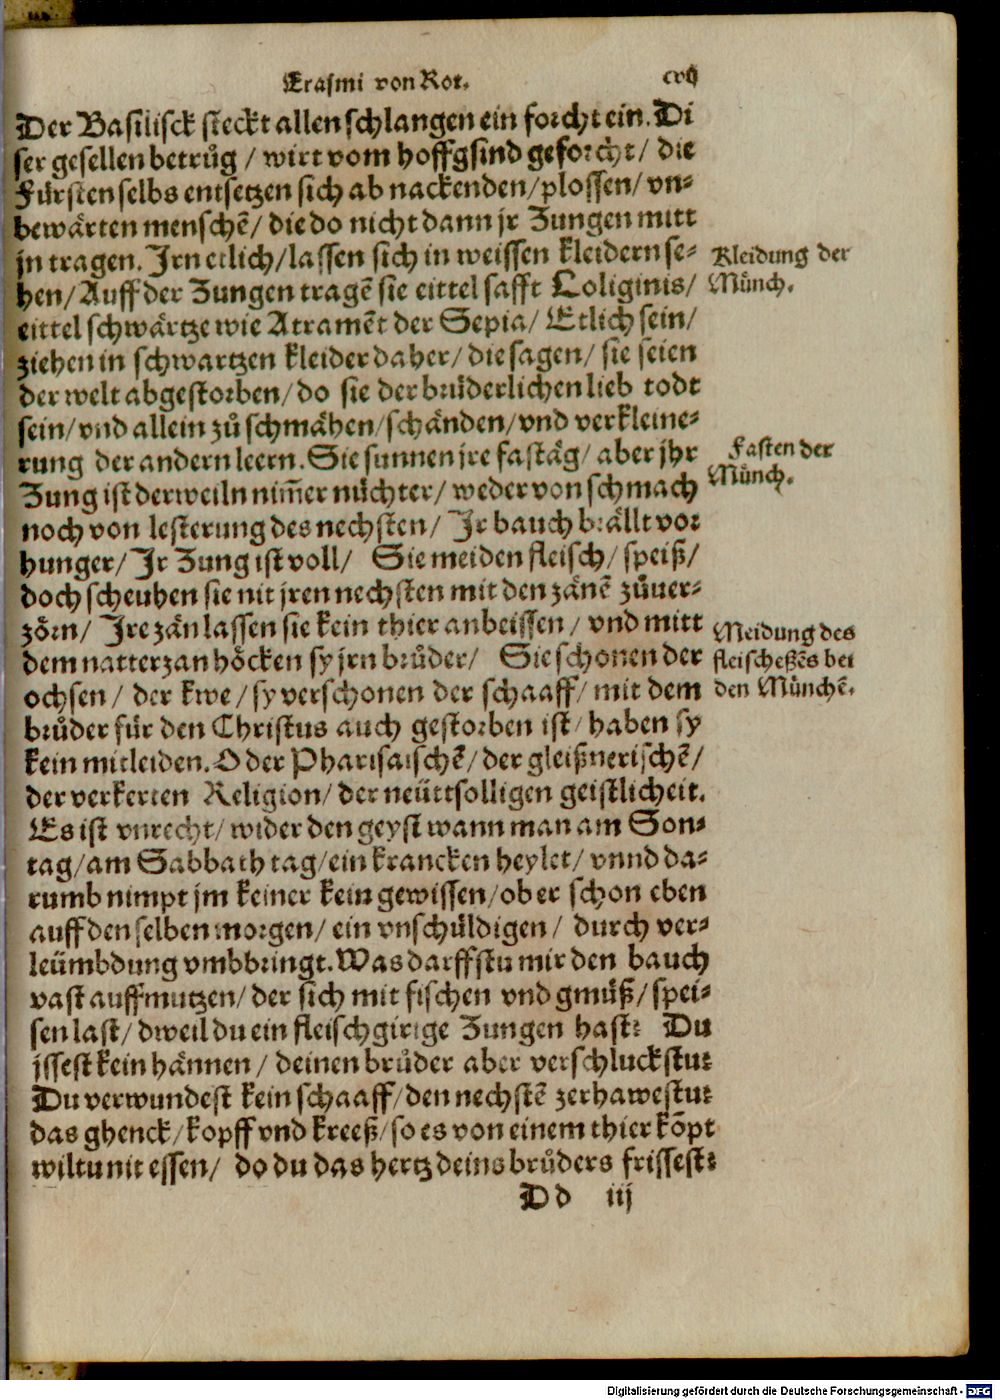 Erasmi von Rot.
cvij
Der Basilisck steckt allen schlangen ein forcht ein. Di
ser gesellen betrůg / wirt vom hoffgsind geforcht / die
Fürsten selbs entsetzen sich ab nackenden / plossen / vn-
bewärten menschē / die do nicht dann jr Zungen mitt
jn tragen. Jrn etlich / lassen sich in weissen kleidern se-
hen / Auff der Zungen tragē sie eittel safft Loliginis /
eittel schwärtze wie Atramēt der Sepia / Etlich sein /
ziehen in schwartzen kleider daher / die sagen / sie seien
der welt abgestorben / do sie der brüderlichen lieb todt
sein / vnd allein zů schmähen / schänden / vnd verkleine-
rung der andern leern. Sie sunnen jre fastäg / aber jhr
Zung ist derweiln nim̄er nüchter / weder von schmach
noch von lesterung des nechsten / Jr bauch brällt vor
hunger / Jr Zung ist voll / Sie meiden fleisch / speiß /
doch scheuhen sie nit jren nechsten mit den zänē zůuer-
zörn / Jre zän lassen sie kein thier anbeissen / vnd mitt
dem natterzan höcken sy jrn brůder / Sie schonen der
ochsen / der kwe / sy verschonen der schaaff / mit dem
brůder für den Christus auch gestorben ist / haben sy
kein mitleiden. O der Pharisaischē / der gleißnerischē /
der verkerten Religion / der neüttsolligen geistlicheit.
Es ist vnrecht / wider den geyst wann man am Son-
tag / am Sabbath tag / ein krancken heylet / vnnd da-
rumb nimpt jm keiner kein gewissen / ob er schon eben
auff den selben morgen / ein vnschüldigen / durch ver-
leümbdung vmbbringt. Was darffstu mir den bauch
vast auffmutzen / der sich mit fischen vnd gmüß / spei-
sen last / dweil du ein fleischgirige Zungen hast? Du
jssest kein hännen / deinen brůder aber verschluckstu?
Du verwundest kein schaaff / den nechstē zerhawestu?
das ghenck / kopff vnd kreeß / so es von einem thier kōpt
wiltu nit essen / do du das hertz deins brůders frissest?
Dd iij
Kleidung der
Münch.
Fasten der
Münch.
Meidung des
fleischeßēs bei
den Münchē.
Digitalisierung gefördert durch die Deutsche Forschungsgemeinschaft - DFG